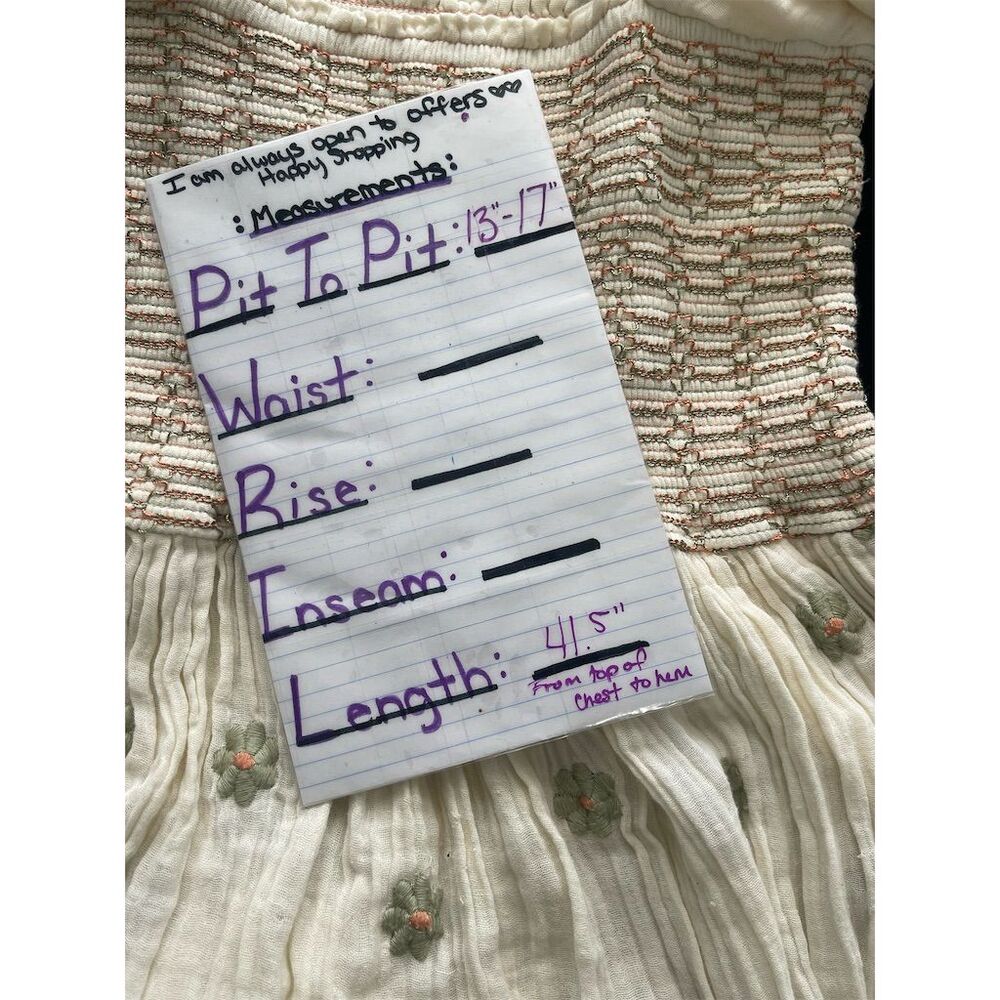 I am always open to offers
Happy Shopping
: Measurements:
Pit To Pit: 13"-17"
Waist:
Rise:
Inseam:
Length: 41.5"
From top of
chest to hem